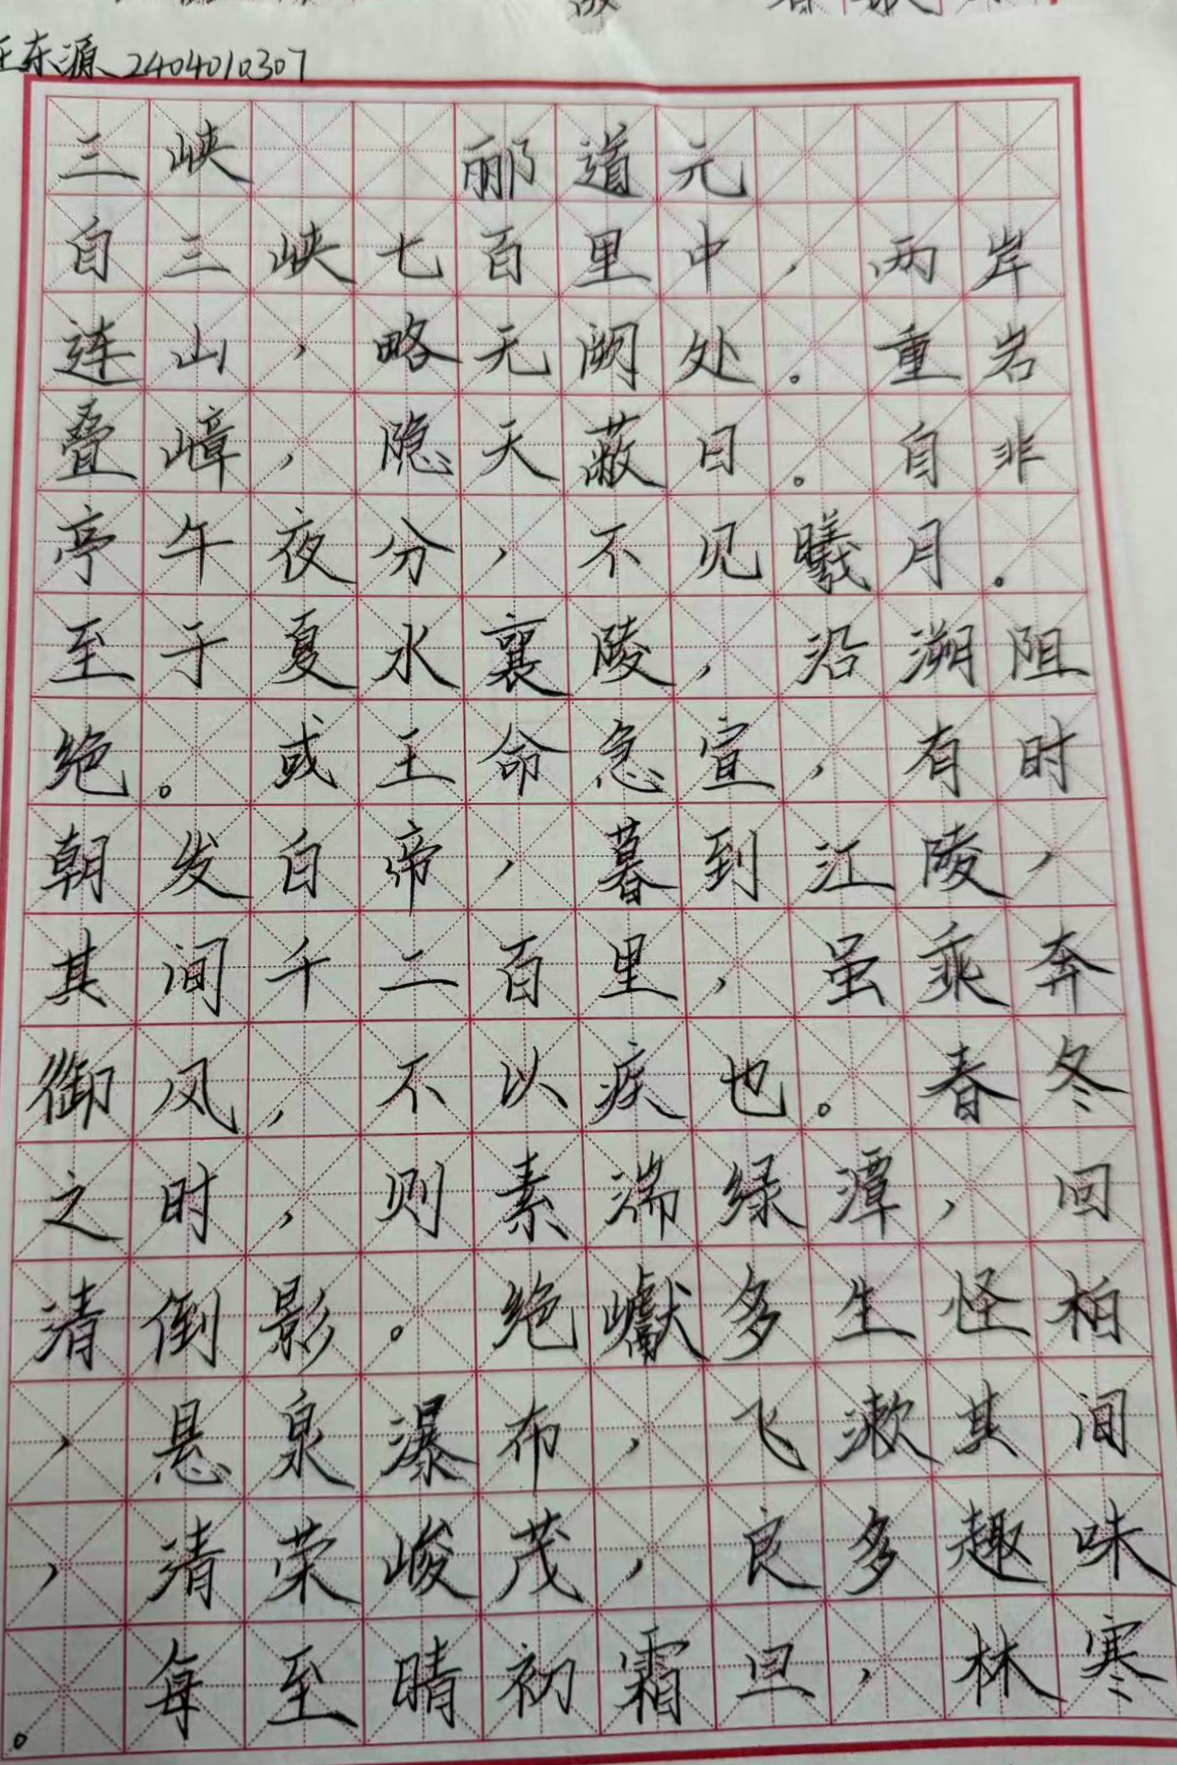 王东源 2404010307
三峡 郦道元
自三峡七百里中，两岸
连山，略无阙处。重岩
叠嶂，隐天蔽日。自非
亭午夜分，不见曦月。
至于夏水襄陵，沿溯阻
绝。或王命急宣，有时
朝发白帝，暮到江陵，
其间千二百里，虽乘奔
御风，不以疾也。春冬
之时，则素湍绿潭，回
清倒影。绝巘多生怪柏
，悬泉瀑布，飞漱其间
，清荣峻茂，良多趣味
。每至晴初霜旦，林寒